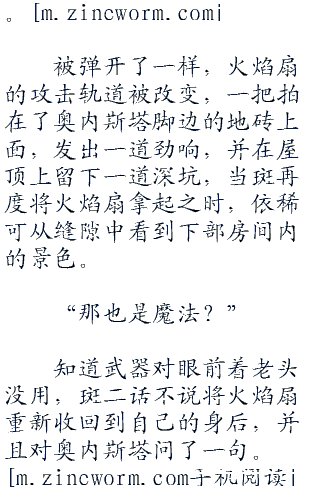 。[m.zincworm.com]
被弹开了一样，火焰扇
的攻击轨道被改变，一把拍
在了奥内斯塔脚边的地砖上
面，发出一道劲响，并在屋
顶上留下一道深坑，当斑再
度将火焰扇拿起之时，依稀
可从缝隙中看到下部房间内
的景色。
“那也是魔法？”
知道武器对眼前着老头
没用，斑二话不说将火焰扇
重新收回到自己的身后，并
且对奥内斯塔问了一句。
[m.zincworm.com手机阅读]